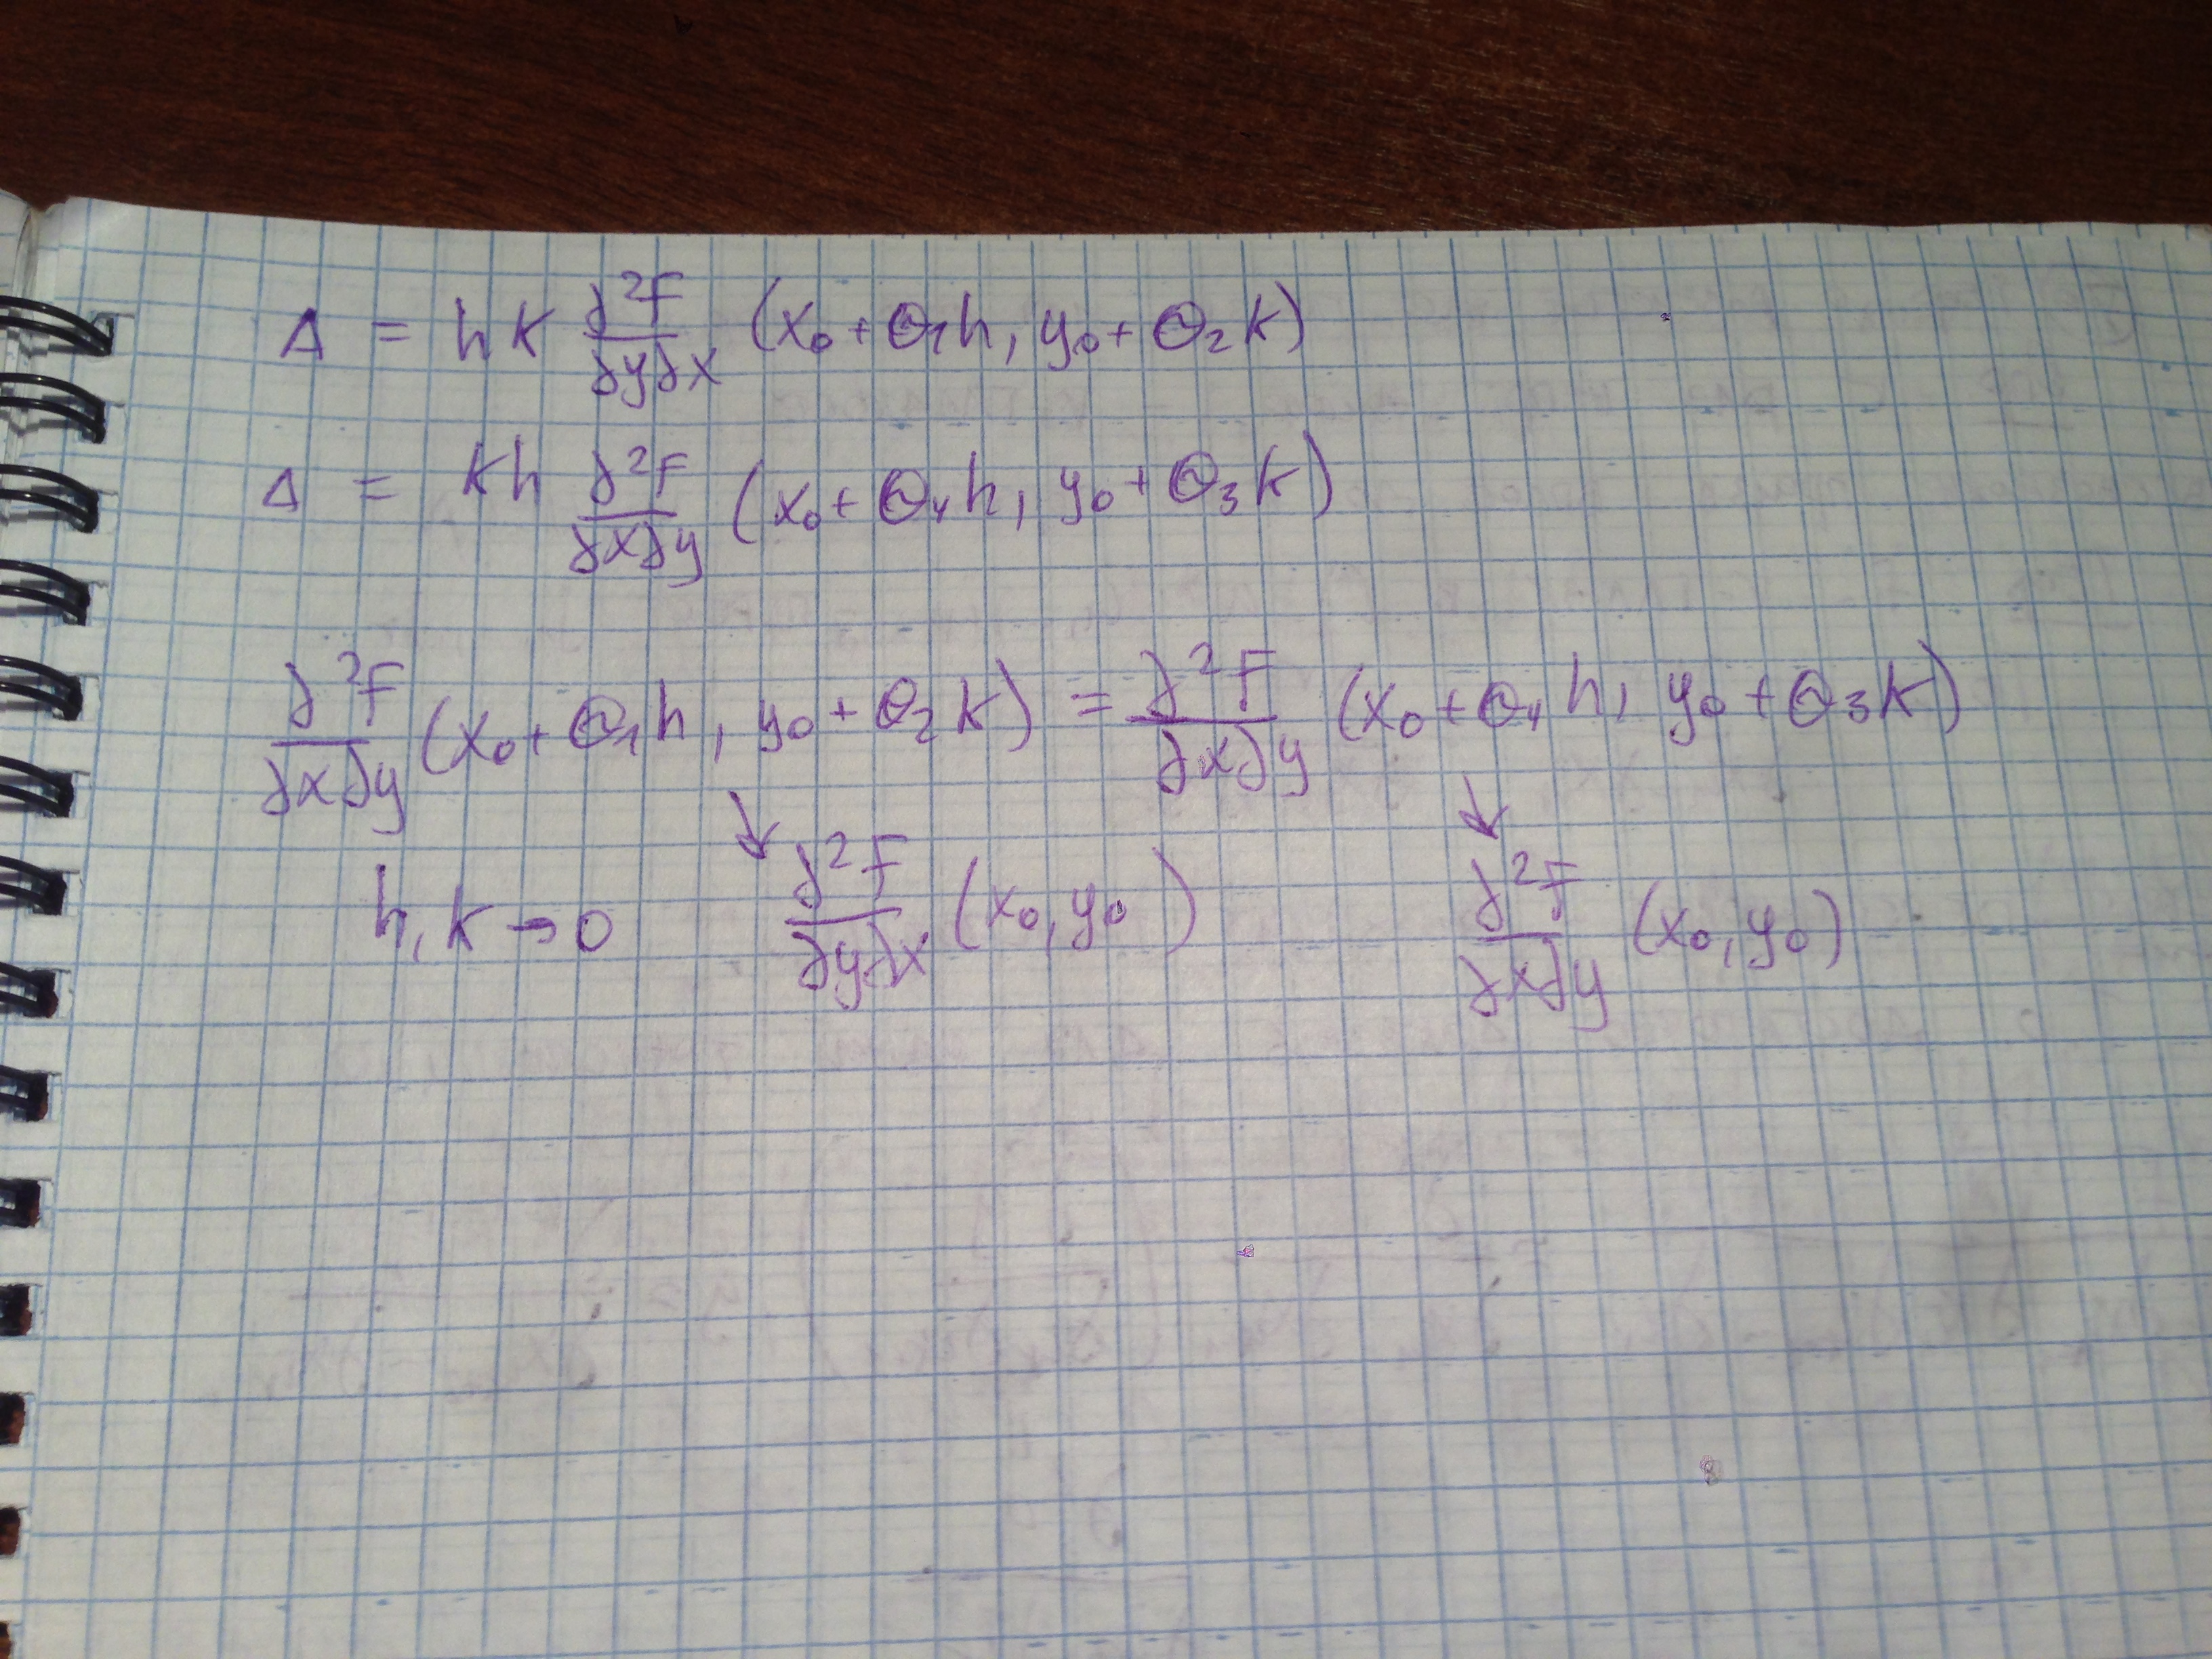 Δ = hk ∂²f/∂y∂x (x₀ + Θ₁h, y₀ + Θ₂k)
Δ = kh ∂²f/∂x∂y (x₀ + Θ₄h, y₀ + Θ₃k)
∂²f/∂x∂y (x₀ + Θ₁h, y₀ + Θ₂k) = ∂²f/∂x∂y (x₀ + Θ₄h, y₀ + Θ₃k)
↓ ↓
h, k → 0 ∂²f/∂y∂x (x₀, y₀) ∂²f/∂x∂y (x₀, y₀)